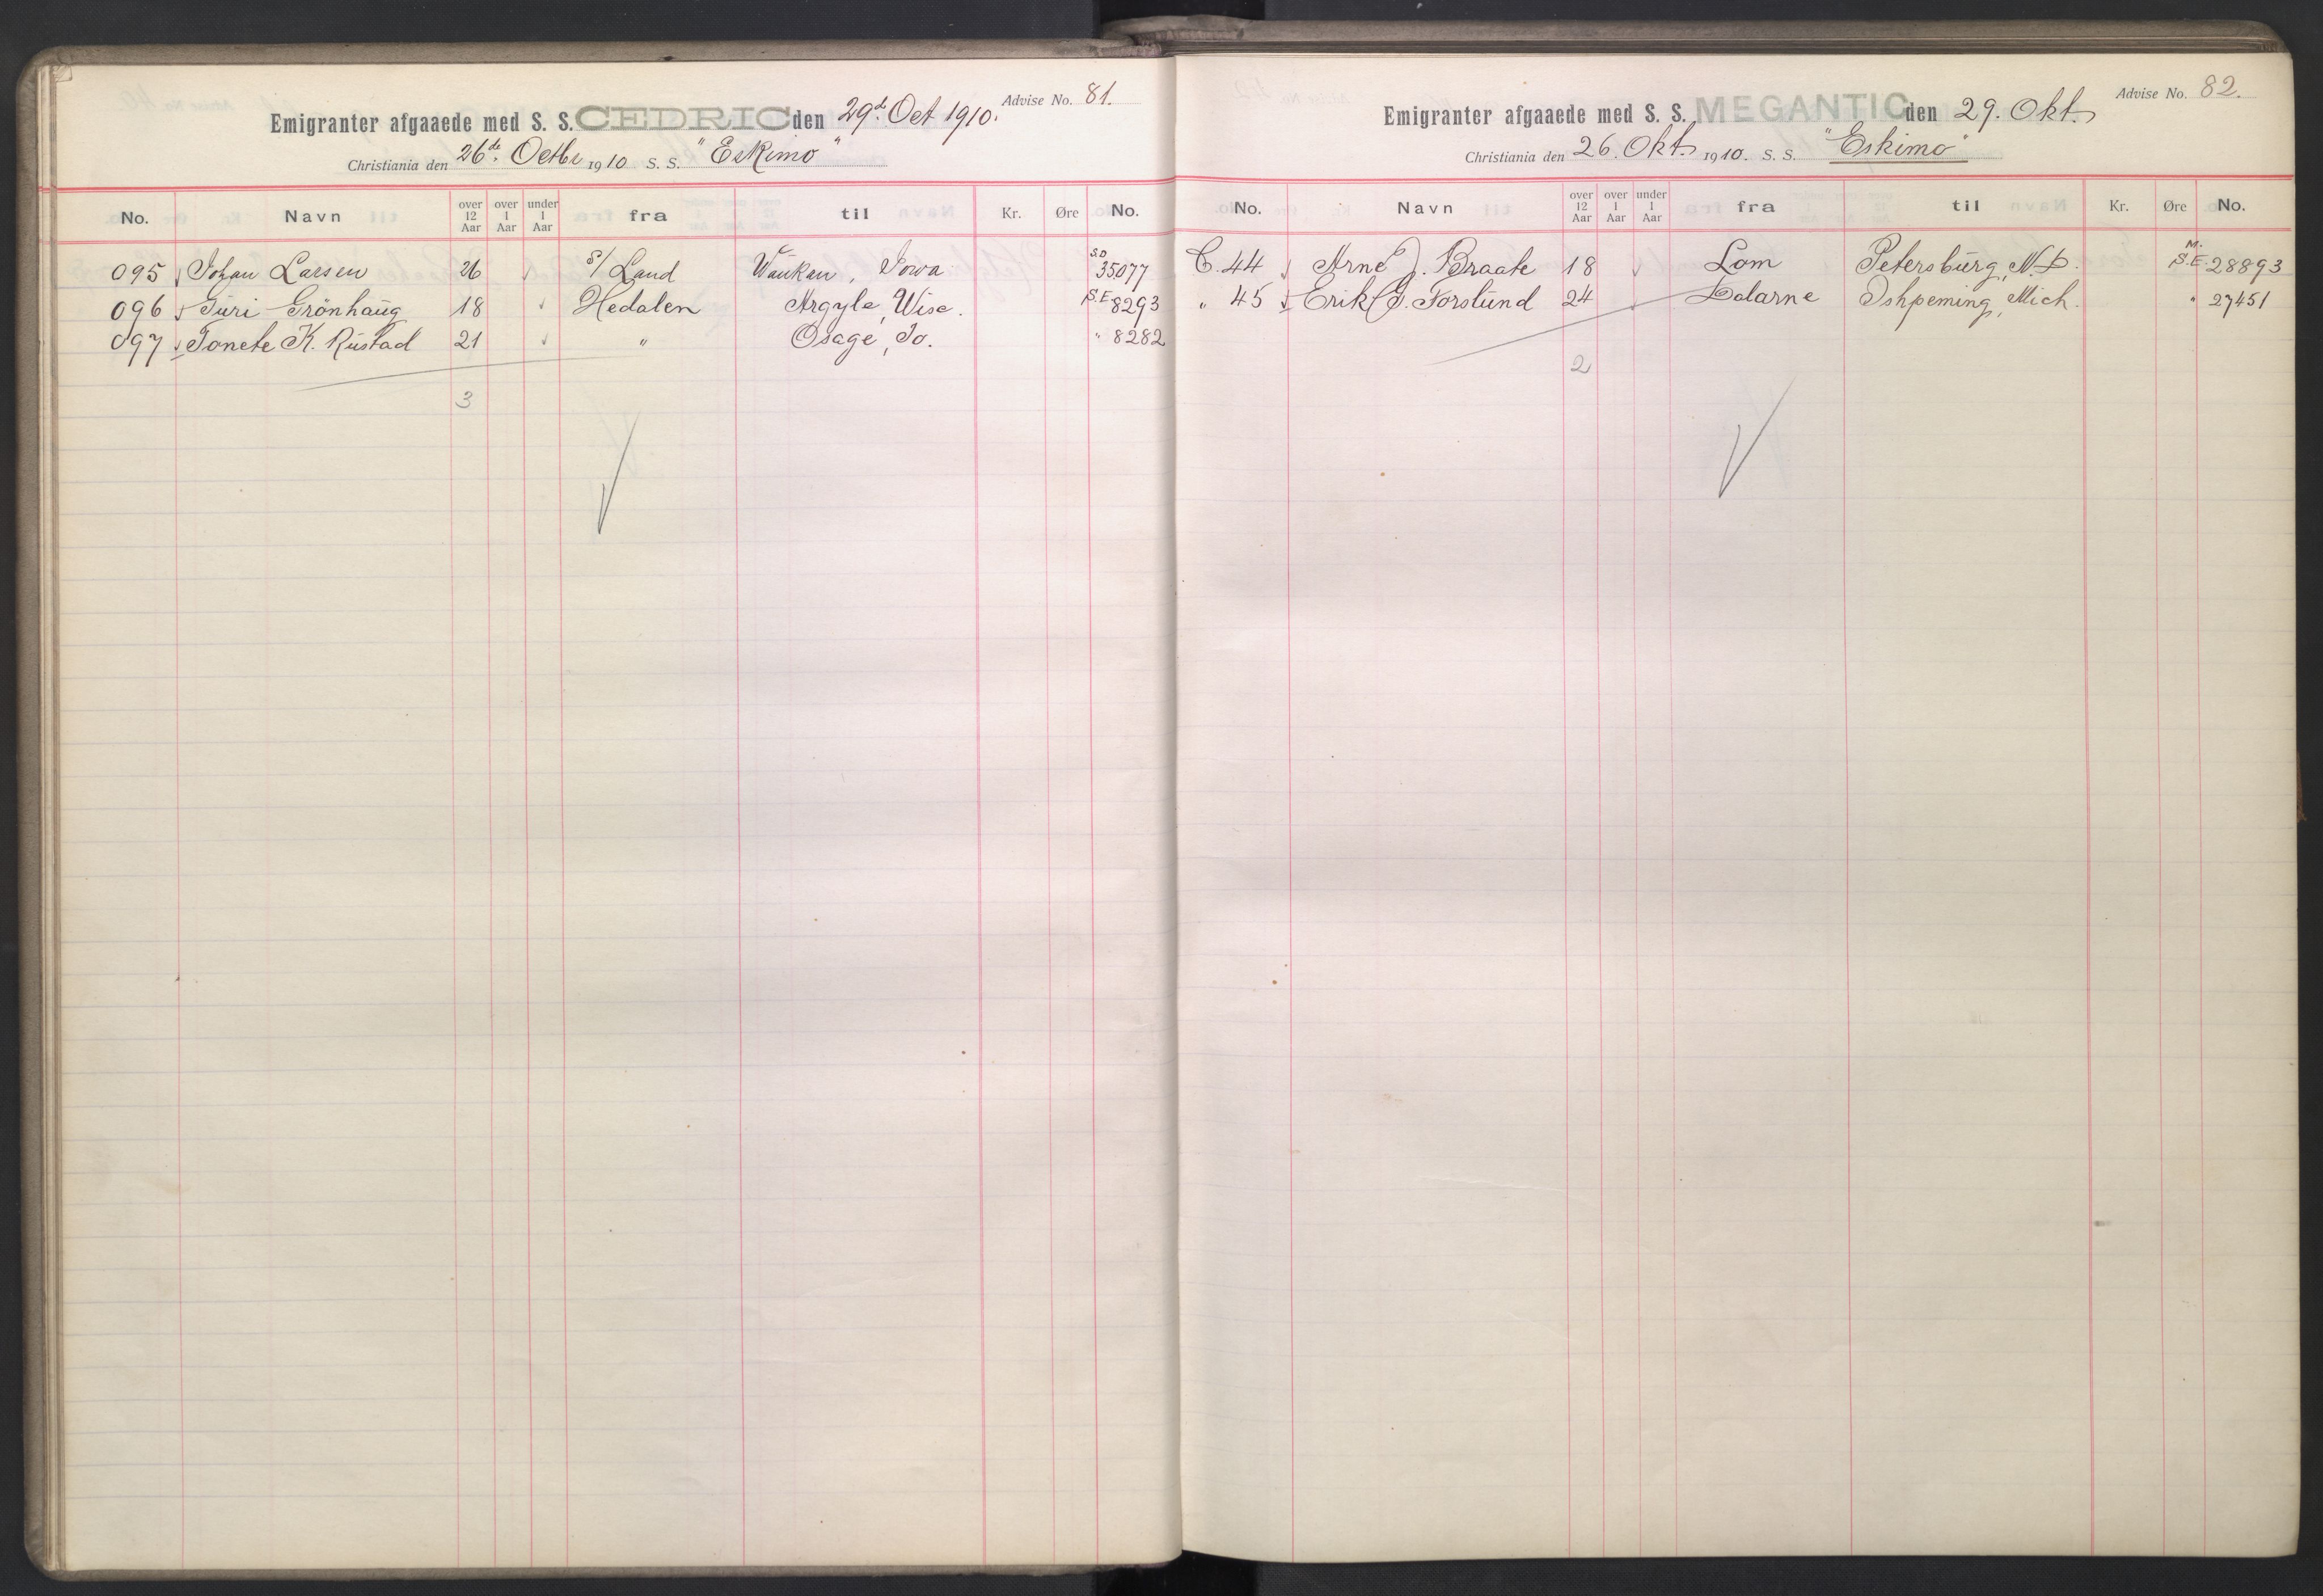 Advise No. 81.
Emigranter afgaaede med S. S. CEDRIC den 29d. Oct 1910.
Christiania den 26de. Octbr 1910 S. S. "Eskimo"
No. Navn over 12 Aar over 1 Aar under 1 Aar fra til Kr. Øre No.
095 Johan Larsen 26 S/ Land Waukan, Iowa S.O 35077
096 Guri Grönhaug 18 Hedalen Argyle, Wisc. S.E 8293
097 Tonete K. Rustad 21 " Osage, Io. " 8282
3
Advise No. 82.
Emigranter afgaaede med S. S. MEGANTIC den 29. Okt.
Christiania den 26. Okt. 1910. S. S. "Eskimo"
No. Navn over 12 Aar over 1 Aar under 1 Aar fra til Kr. Øre No.
C. 44 Arne J. Braate 18 Lom Petersburg, N.D. M. S.E. 28893
" 45 Erik J. Forslund 24 Dalarne Ishpeming, Mich. " 27451
2